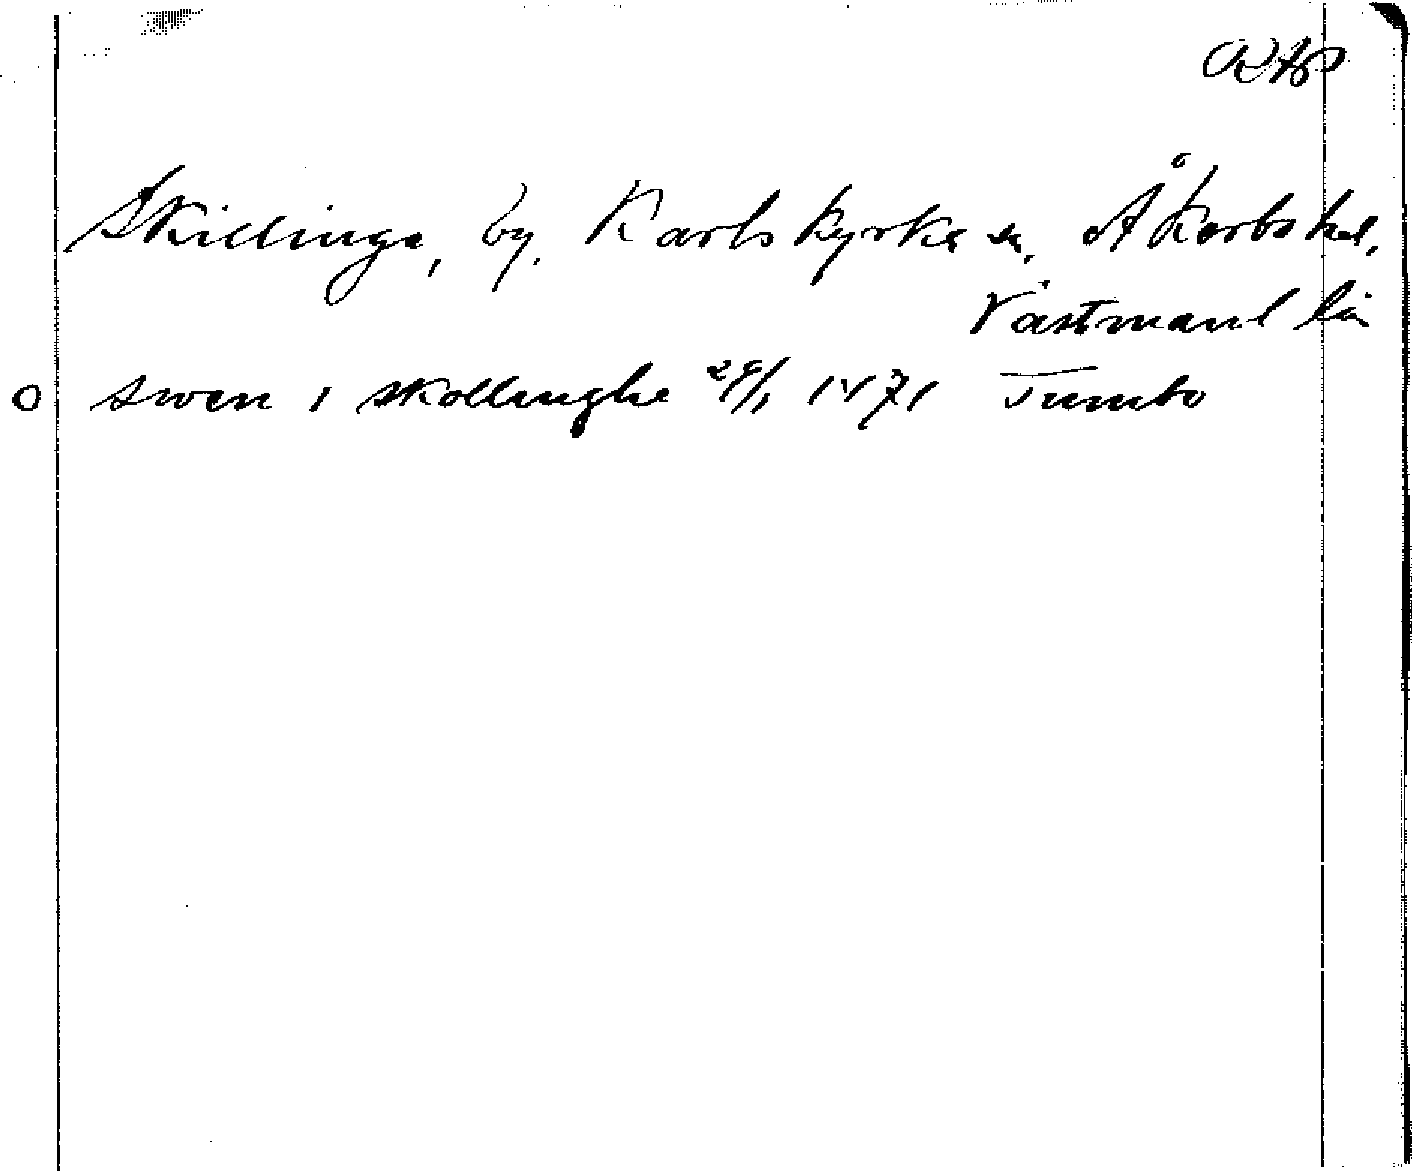 Skillinge, by, Karlskyrka sn, Åkerbo hd,
Västmanl län
O swen i skollinghe 29/1 1471 Tumbo